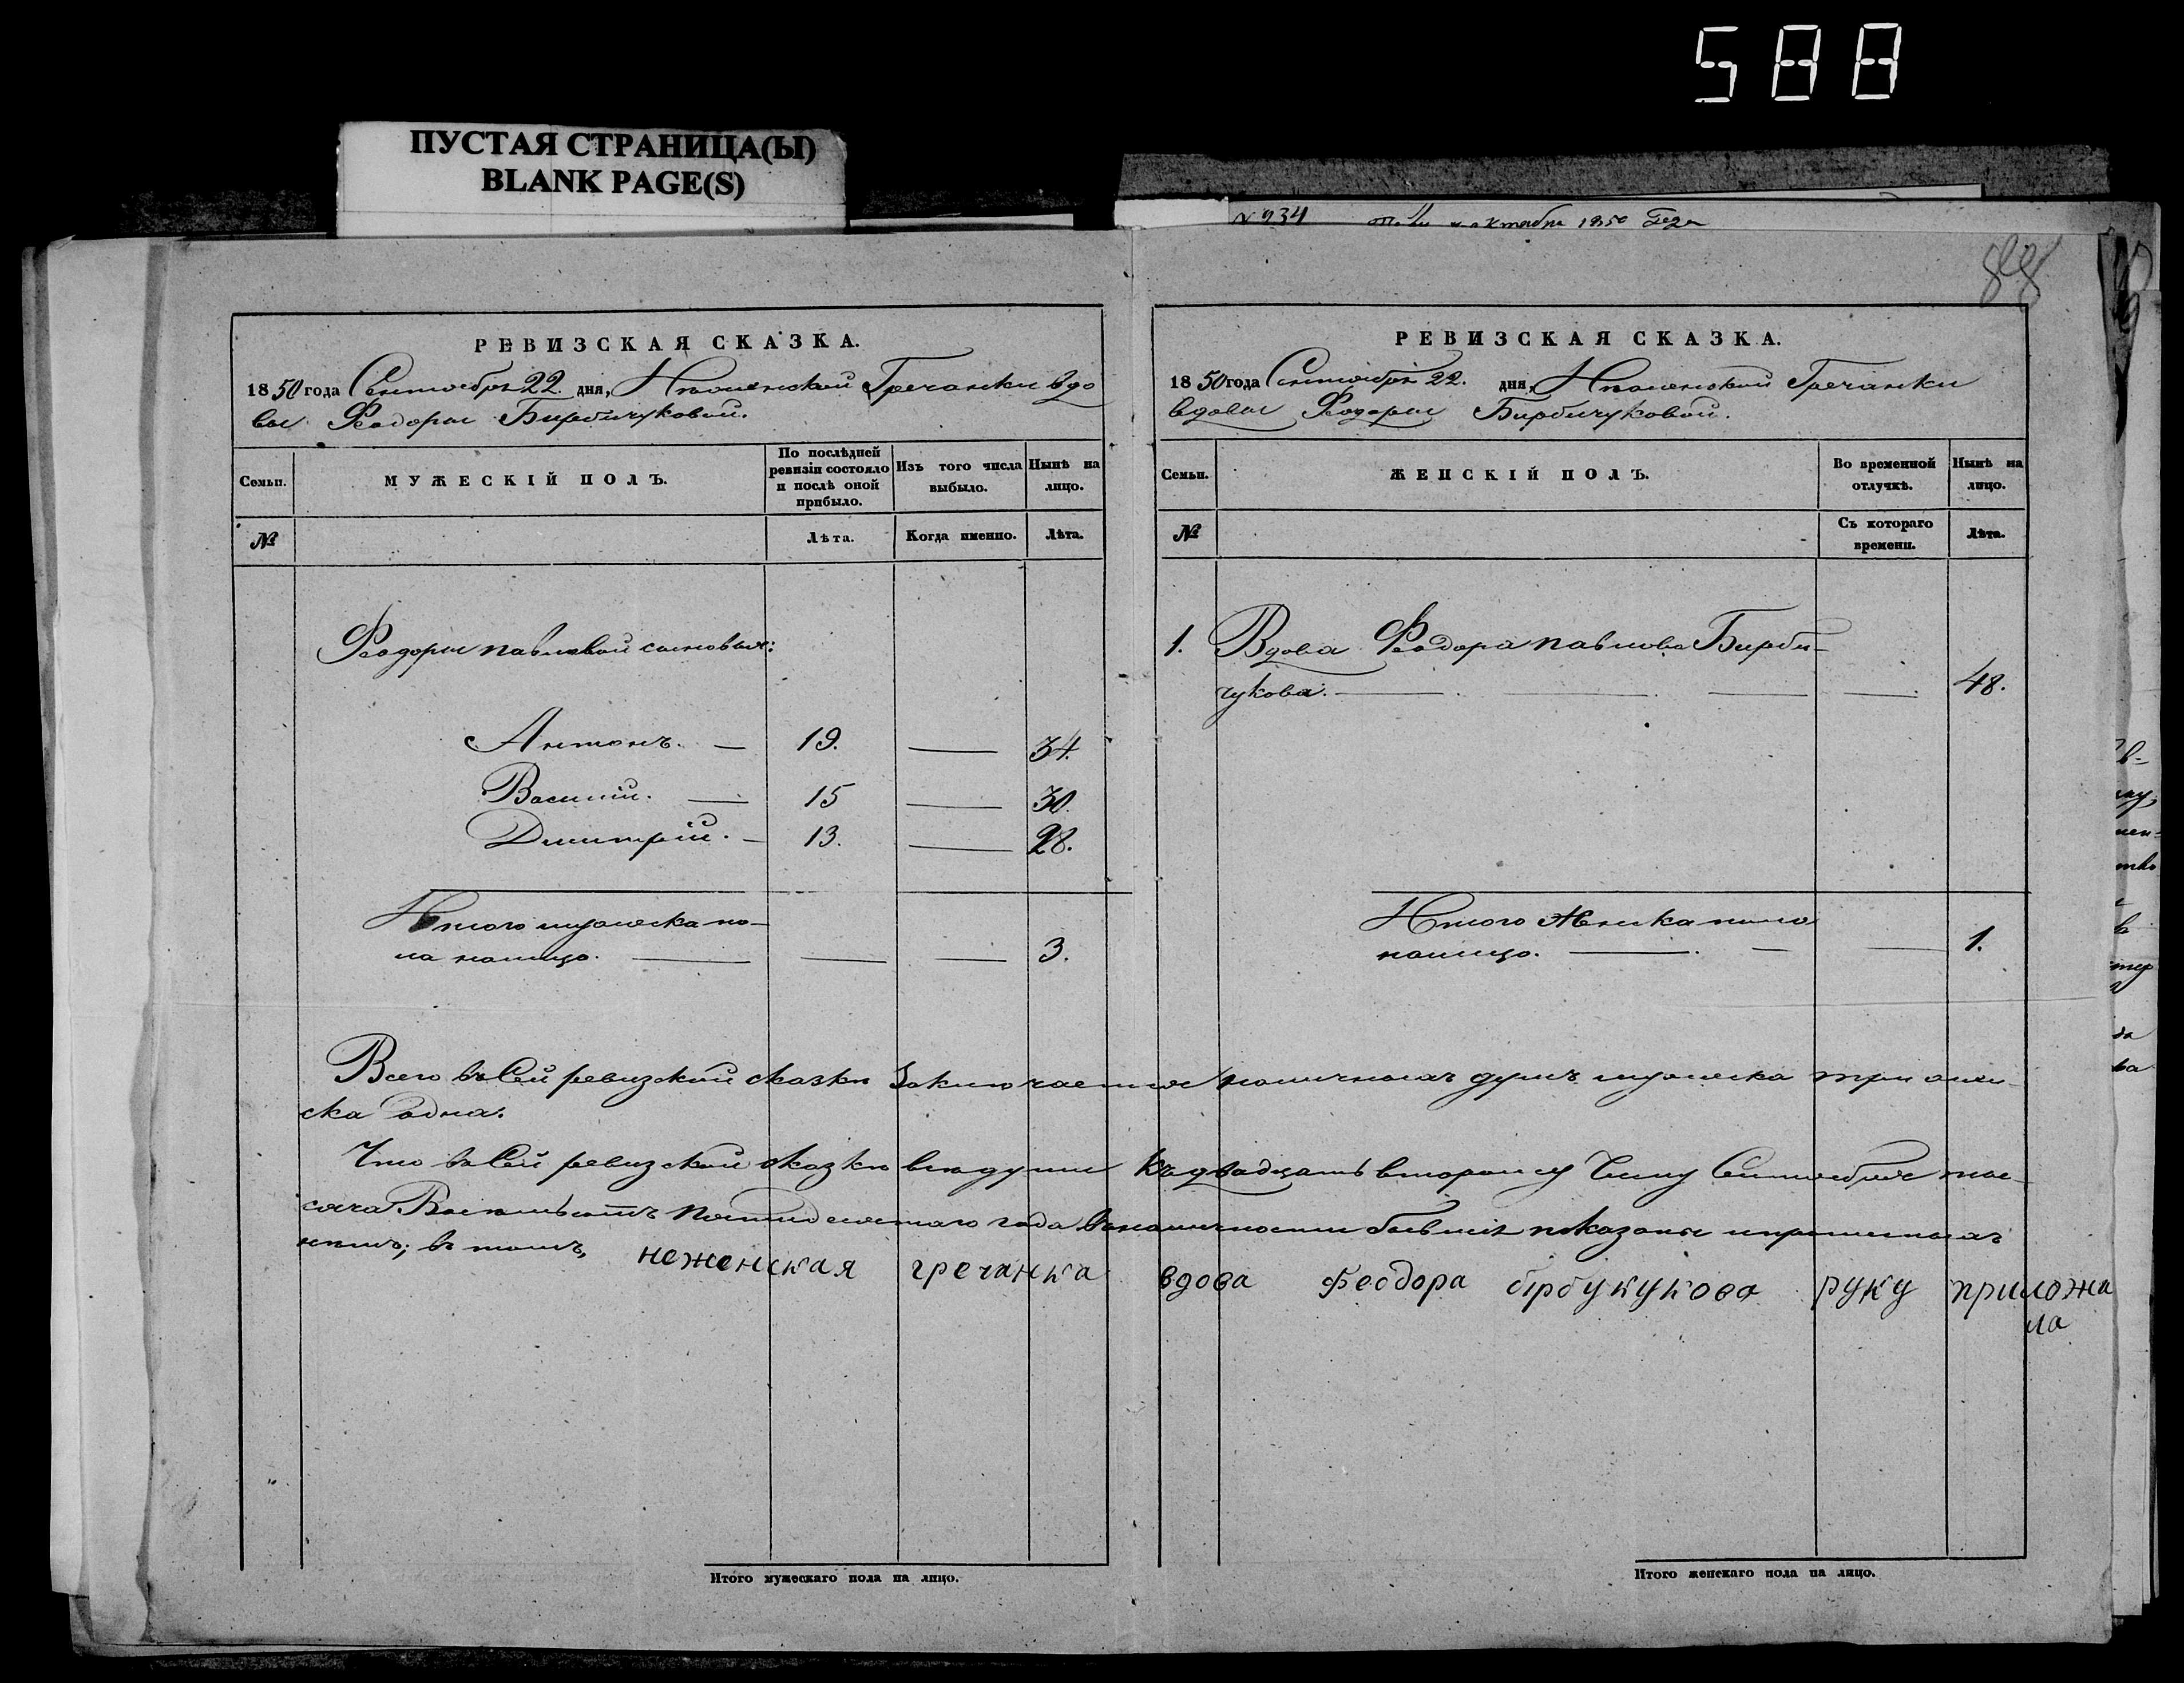 588
ПУСТАЯ СТРАНИЦА(Ы)
BLANK PAGE(S)
№ 934 октября 1850 Года
РЕВИЗСКАЯ СКАЗКА.
1850 года Сентября 22. дня, Нѣженской Гречанки вдо
вы Феодоры Бирбичуковой.
Семьи.
МУЖЕСКІЙ ПОЛЪ.
По послѣдней ревизіи состояло и послѣ оной прибыло.
Изъ того числа выбыло.
Нынѣ на лицо.
№
Лѣта.
Когда именно.
Лѣта.
Феодоры Павловой сыновья:
Антонъ. — 19. — 34.
Василій. — 15 — 30.
Дмитрій. — 13. — 28.
Итого мужеска по-
ла налицо. — — — 3.
РЕВИЗСКАЯ СКАЗКА.
1850 года Сентября 22. дня, Нѣженской Гречанки
вдовы Феодоры Бирбичуковой.
Семьи.
ЖЕНСКІЙ ПОЛЪ.
Во временной отлучкѣ.
Нынѣ на лицо.
№
Съ котораго времени.
Лѣта.
1. Вдова Феодора Павлова Бирби-
чукова. — — — — 48.
Итого женска пола
налицо. — — — 1.
Всего въ Сей ревизской сказкѣ Заключается наличныхъ душъ мужеска три
ска одна.
Что въ Сей ревизской сказкѣ всѣ души Къ двадцать второму Числу Сентября ты-
сяча Восемьсотъ Пятидесятаго года въ наличности бывшія показаны
; въ томъ, неженская гречанка вдова Феодора бірбукукова руку приложа
ла
Итого мужескаго пола на лицо.
Итого женскаго пола на лицо.